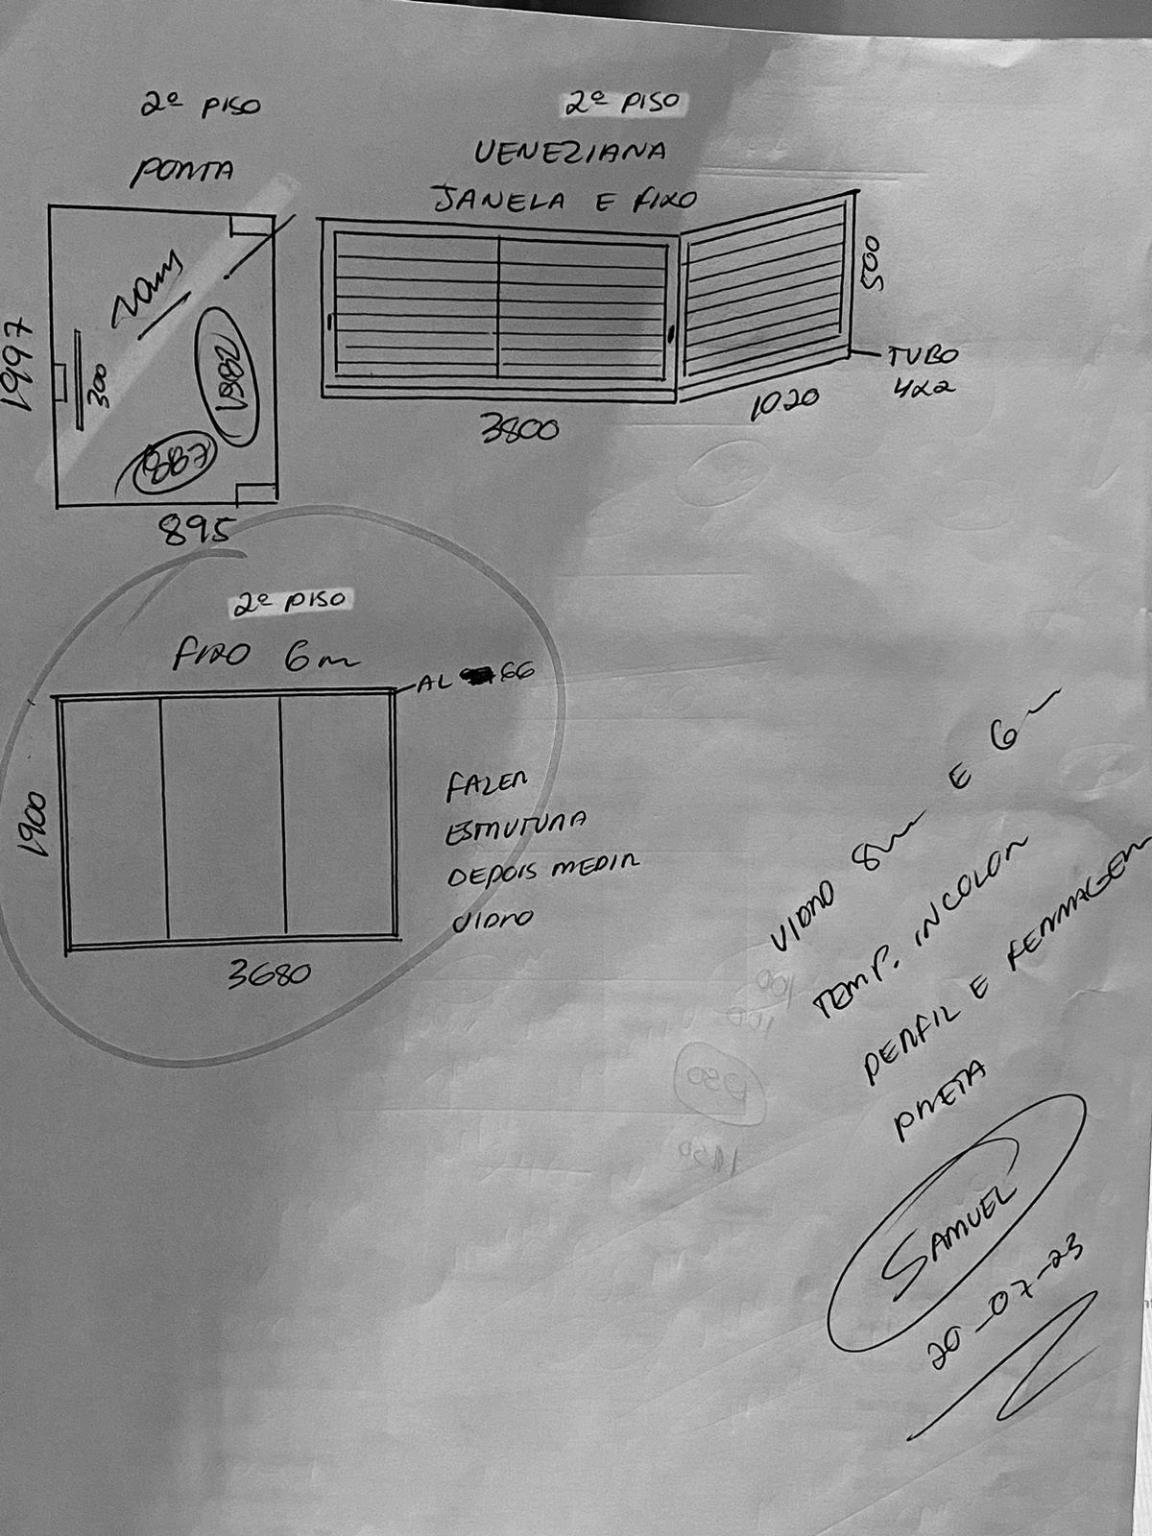 2º PISO
PORTA
1997
10m
300
1982
887
895
2º PISO
VENEZIANA
JANELA E FIXO
500
TUBO
4x2
3800
1020
2º PISO
FIXO 6m
AL 66
1900
3680
FAZER
ESTRUTURA
DEPOIS MEDIR
VIDRO
VIDRO 8m E 6m
TEMP. INCOLOR
PERFIL E FERRAGEM
PRETA
SAMUEL
20-07-23